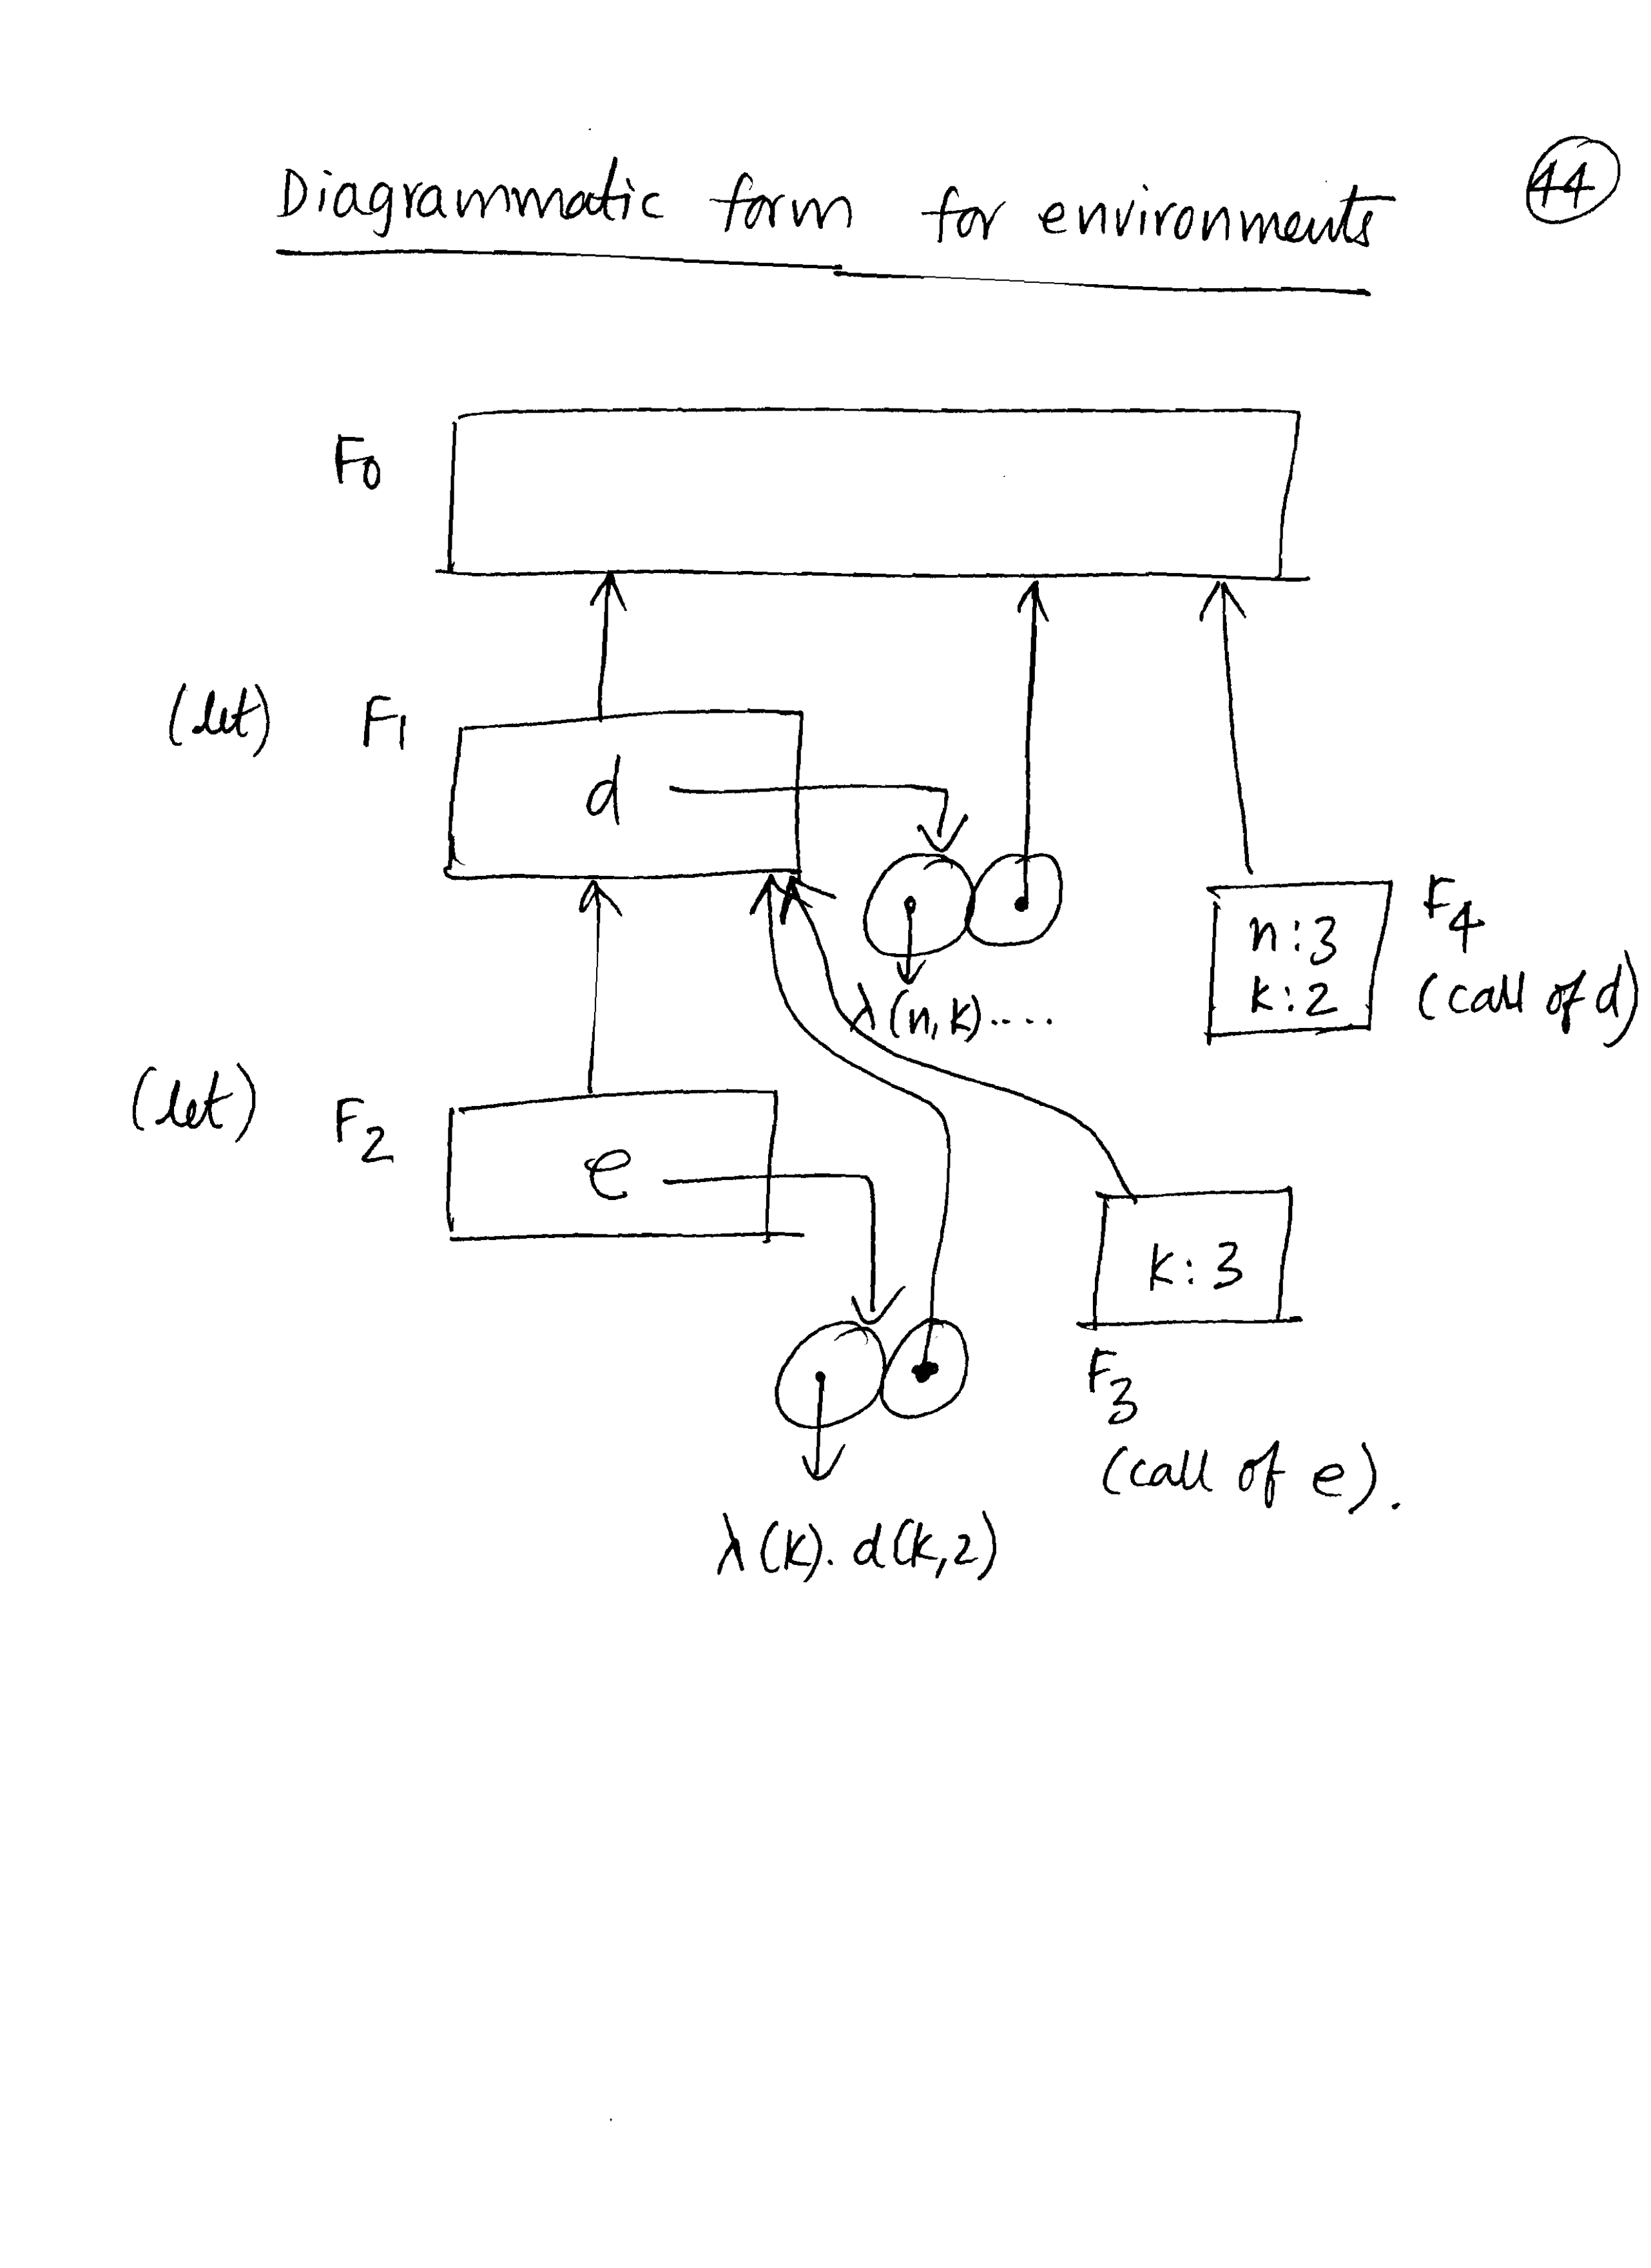 44
Diagrammatic form for environments
F0
(let) F1
d
n:3
k:2
F4
(call of d)
λ(n,k)....
(let) F2
e
k:3
F3
(call of e).
λ(k). d(k,2)